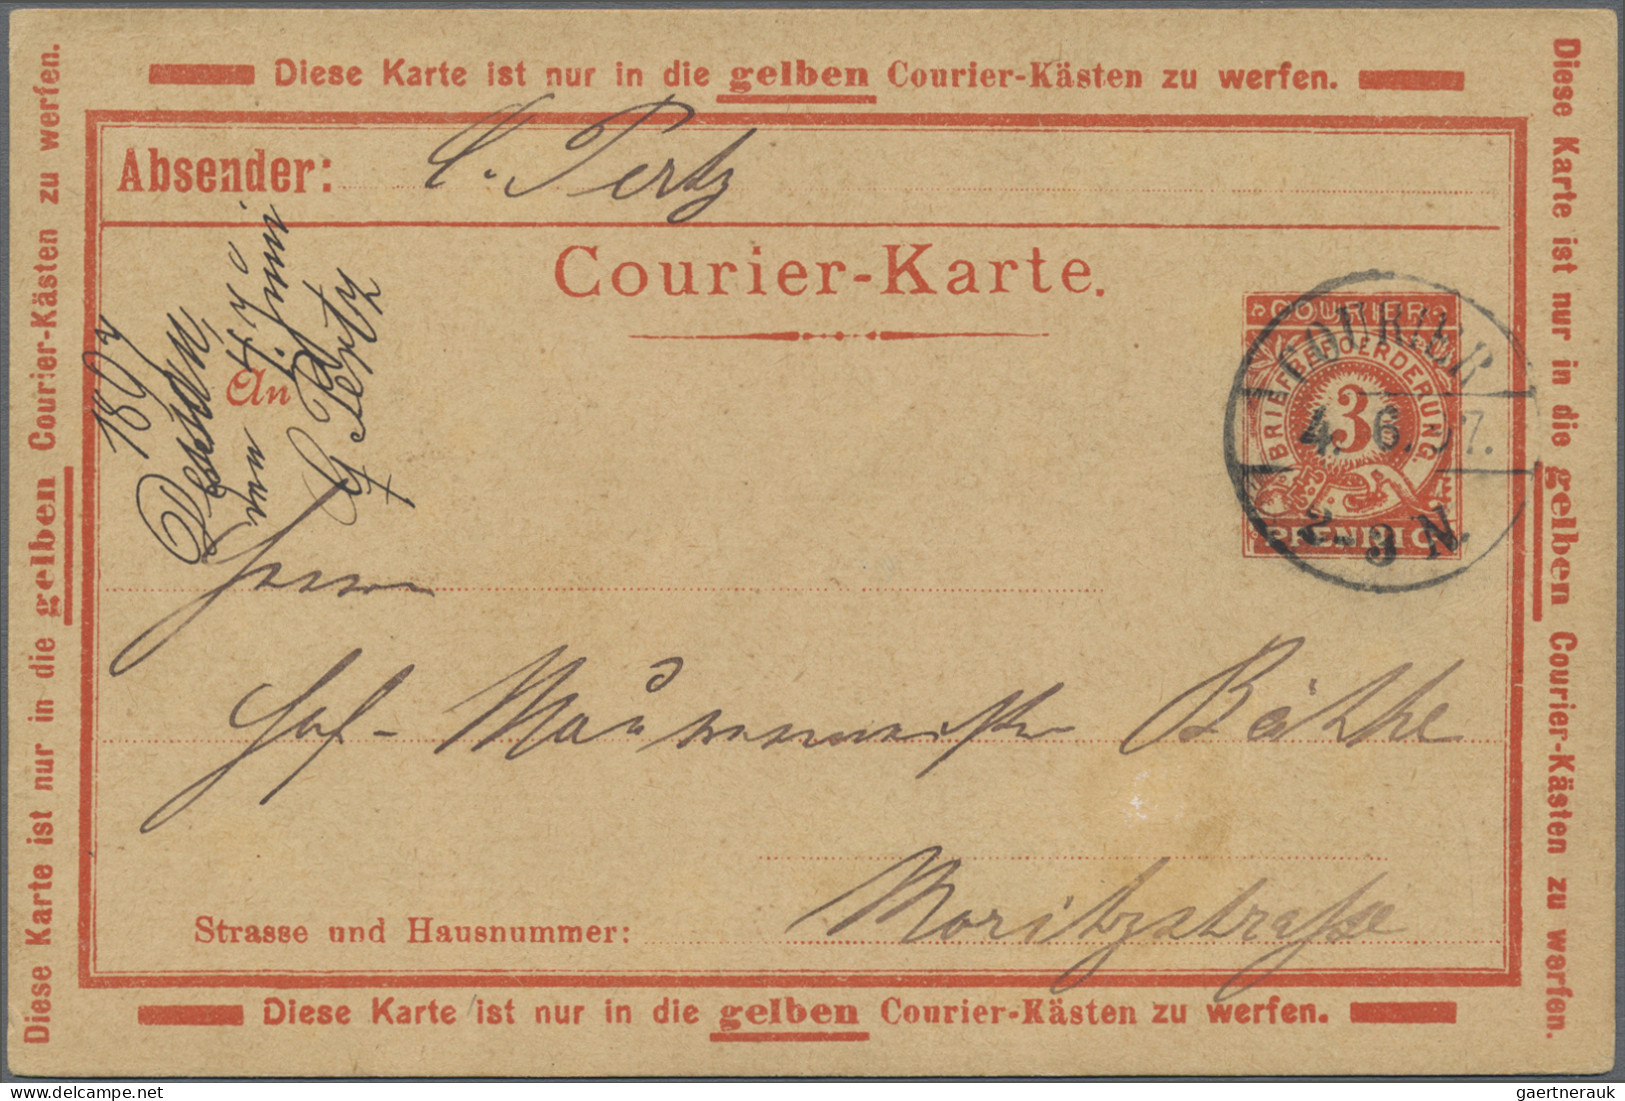 Diese Karte ist nur in die gelben Courier-Kästen zu werfen.
Absender: C. Pertz
Courier-Karte.
An
1897
Dessau,
vom 4. Juni
Pertz
COURIER
BRIEFBEFOERDERUNG.
3
PFENNIG
COURIER
4. 6. 97.
2-3 N.
Herrn
Hof-Maurermeister Bäthke
Strasse und Hausnummer: Moritzstraße
Diese Karte ist nur in die gelben Courier-Kästen zu werfen.
Diese Karte ist nur in die gelben Courier-Kästen zu werfen.
Diese Karte ist nur in die gelben Courier-Kästen zu werfen.
delcampe.net
gaertnerauk